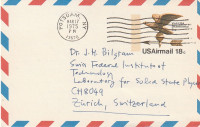 POTSDAM, NY
PM
1975
13676
USAirmail 18c
Dr. J. H. Bilgram
Swiss Federal Institute of
Technology
Laboratory for Solid State Physics
CH8049
Zürich, Switzerland